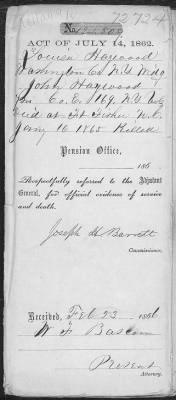 72724
No. 122,809
ACT OF JULY 14, 1862.
Louisa Haywood
Washington Co N.Y. Wid
John Haywood
Co. E. 169. N.Y.
died at Ft Fisher N.C.
Jany 16 1865 Killed
Pension Office,
186
Respectfully referred to the Adjutant
General, for official evidence of service
and death.
Joseph H Barrett
Commissioner.
Received, Feb 23 1866
W F Bascom
Present
Attorney.